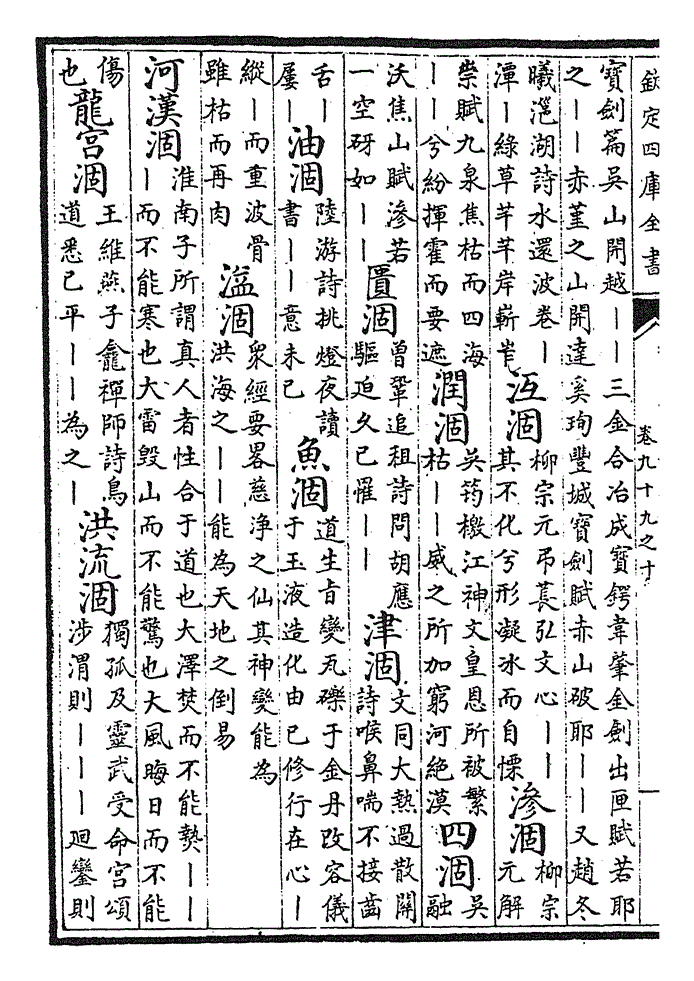 欽定四庫全書
卷九十九之十
寶劍篇吳山開越｜｜三金合冶成寶鍔韋肇金劍出匣賦若耶
之｜｜赤堇之山開達奚珣豐城寶劍賦赤山破耶｜｜又趙冬
曦㴩湖詩水還波卷｜
潭｜綠草芊芊岸嶄崒
沍涸
柳宗元弔萇弘文心｜｜
其不化兮形凝冰而自慄
滲涸
柳宗
元解
祟賦九泉焦枯而四海
｜｜兮紛揮霍而要遮
潤涸
吳筠檄江神文皇恩所被繁
枯｜｜威之所加窮河絕漠
四涸
吳
融
沃焦山賦滲若
一空砑如｜｜
匱涸
曾鞏追祖詩問胡應
驅迫久已罹｜｜
津涸
文同大熱過散關
詩喉鼻喘不接齒
舌｜
屢｜
油涸
陸游詩挑燈夜讀
書｜｜意未已
魚涸
道生旨變瓦礫于金丹改容儀
于玉液造化由已修行在心｜
縱｜而重波骨
雖枯而再肉
溢涸
衆經要畧慈浄之仙其神變能為
洪海之｜｜能為天地之倒易
河漢涸
淮南子所謂真人者性合于道也大澤焚而不能熱｜｜
｜而不能寒也大雷毀山而不能驚也大風晦日而不能
傷
也
龍宫涸
王維燕子龕禪師詩鳥
道悉已平｜｜為之｜
洪流涸
獨孤及靈武受命宫頌
涉渭則｜｜｜廻鑾則